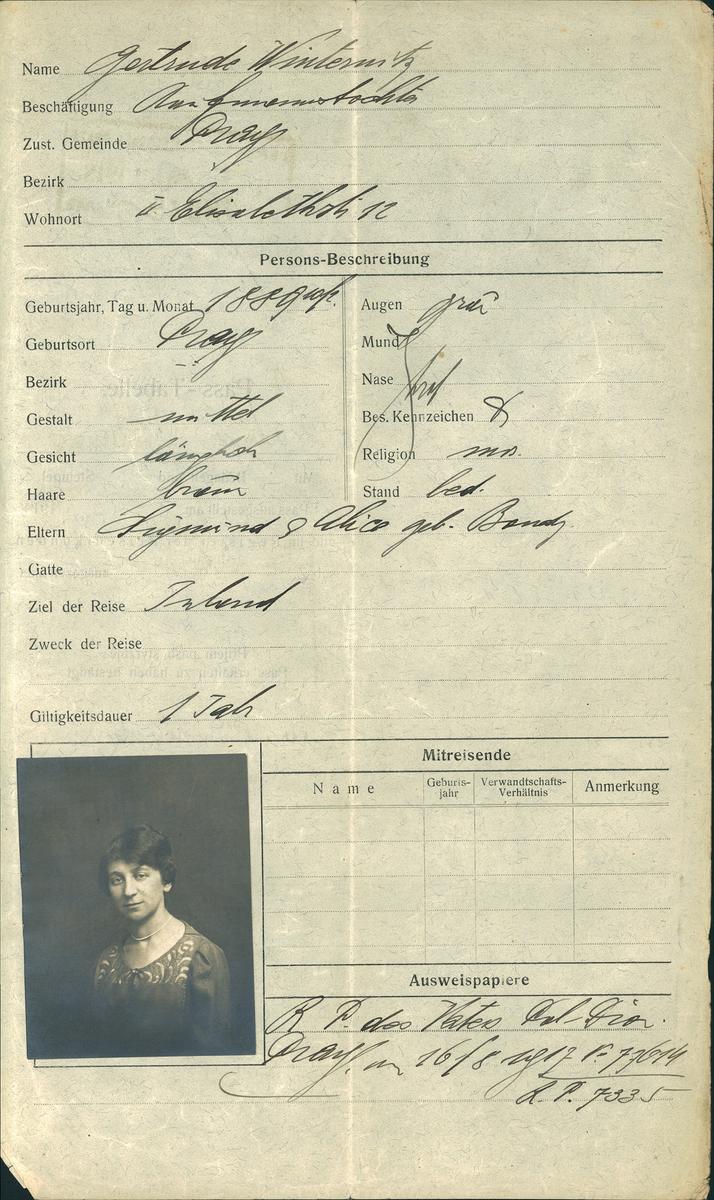 Name Gertrude Winternitz
Beschäftigung Kaufmannstochter
Zust. Gemeinde Prag
Bezirk
Wohnort II. Elisabethstr 12
Persons-Beschreibung
Geburtsjahr, Tag u. Monat 1889
Geburtsort Prag
Bezirk
Gestalt mittel
Gesicht länglich
Haare braun
Augen grau
Mund
Nase
Bes. Kennzeichen
Religion mos.
Stand led.
Eltern Sigmund & Alice geb. Bondy
Gatte
Ziel der Reise Inland
Zweck der Reise
Giltigkeitsdauer 1 Jahr
Mitreisende
Name Geburts-jahr Verwandtschafts-Verhältnis Anmerkung
Ausweispapiere
R. P. des Vaters Pol. Dion.
Prag, 16/8 1917 77614
R. P. 7335